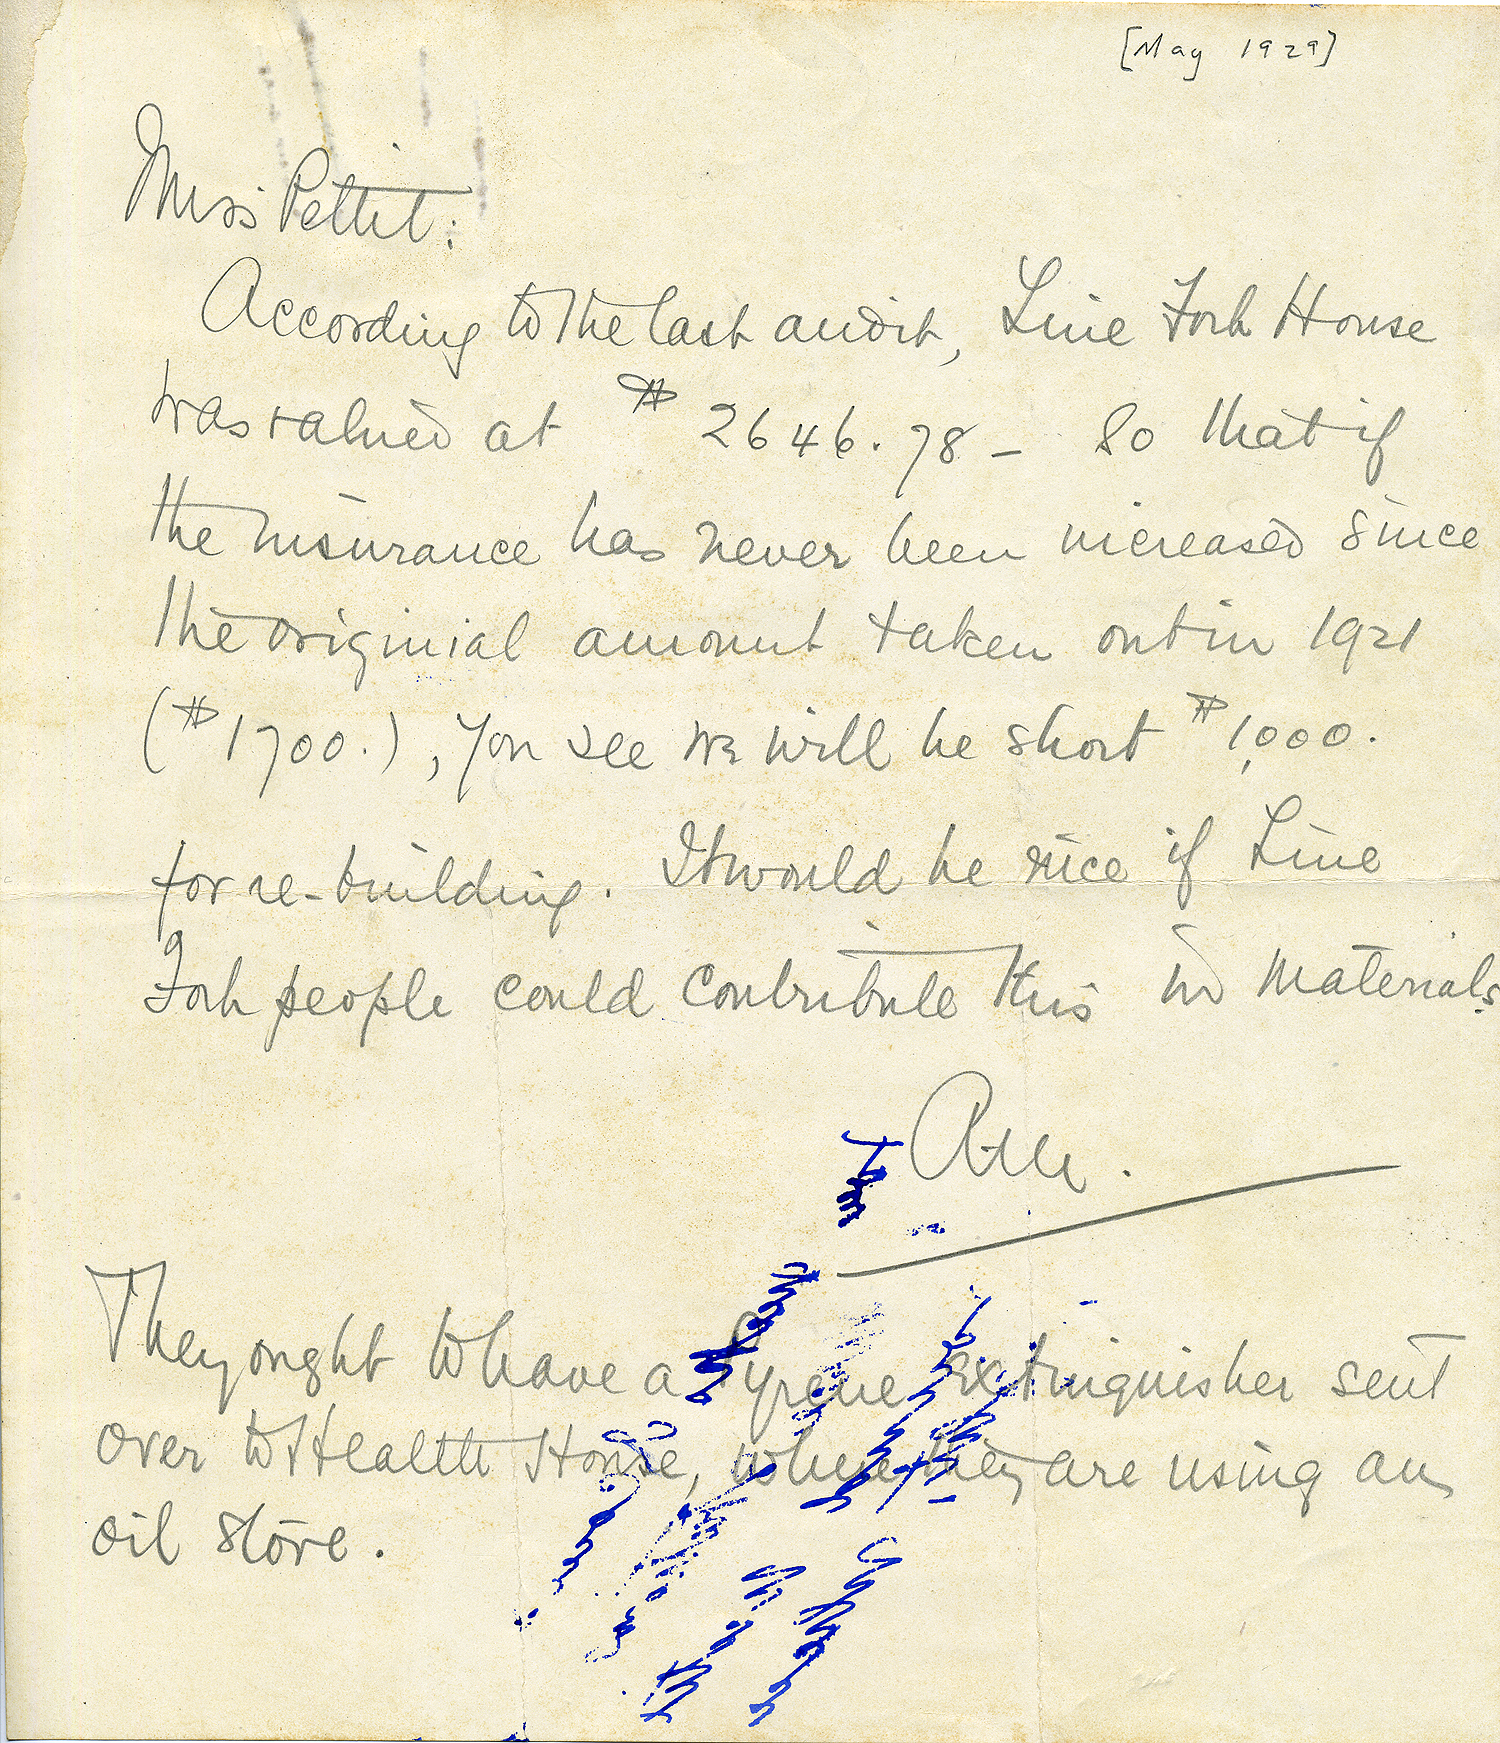 [May 1929]
Miss Pettit:
According to the last audit, Line Fork House
was valued at $2646.78 – So that if
the insurance has never been increased since
the originial amount taken out in 1921
($1700.), you see we will be short $1,000.
for re-building. It would be nice if Line
Fork people could contribute this in materials.
They ought to have a Pyrene extinguisher sent
over to Health House, where they are using an
oil stove.